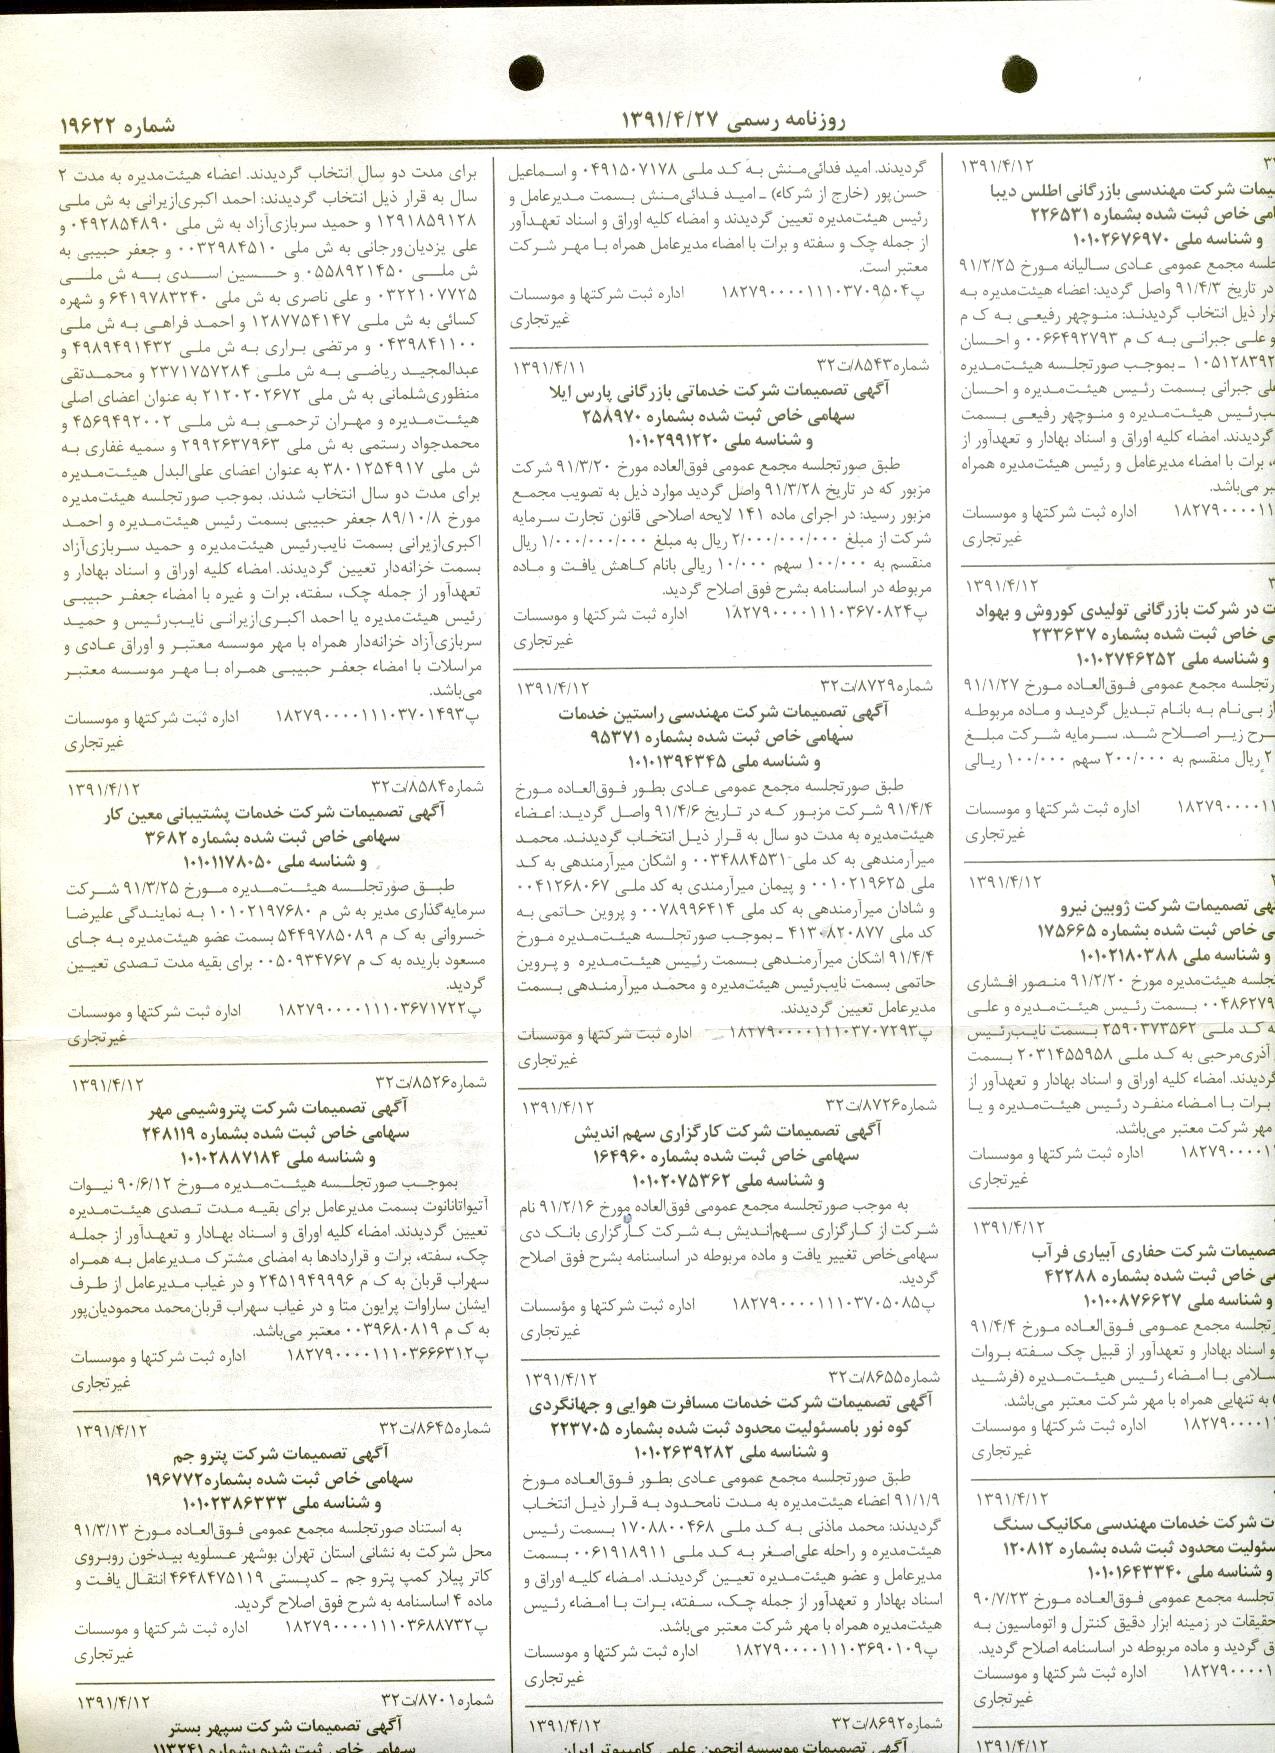 روزنامه رسمی ۱۳۹۱/۴/۲۷
شماره ۱۹۶۲۲
۱۳۹۱/۴/۱۲
یمات شرکت مهندسی بازرگانی اطلس دیبا
امی خاص ثبت شده بشماره ۲۲۶۵۳۱
و شناسه ملی ۱۰۱۰۲۶۷۶۹۷۰
جلسه مجمع عمومی عادی سالیانه مورخ ۹۱/۲/۲۵
در تاریخ ۹۱/۴/۳ واصل گردید: اعضاء هیئت‌مدیره به
رار ذیل انتخاب گردیدند: منوچهر رفیعی به ک م
و علی جبرانی به ک م ۰۰۶۶۴۹۲۷۹۳ و احسان
۱۰۵۱۲۸۳۹۲ ـ بموجب صورتجلسه هیئت‌مدیره
علی جبرانی بسمت رئیس هیئت‌مدیره و احسان
ب‌رئیس هیئت‌مدیره و منوچهر رفیعی بسمت
گردیدند. امضاء کلیه اوراق و اسناد بهادار و تعهدآور از
، برات با امضاء مدیرعامل و رئیس هیئت‌مدیره همراه
بر می‌باشد.
۱۸۲۷۹۰۰۰۰۱۱ اداره ثبت شرکتها و موسسات
غیرتجاری
۱۳۹۱/۴/۱۲
ت در شرکت بازرگانی تولیدی کوروش و بهواد
ی خاص ثبت شده بشماره ۲۳۳۶۳۷
و شناسه ملی ۱۰۱۰۲۷۴۶۲۵۲
رتجلسه مجمع عمومی فوق‌العاده مورخ ۹۱/۱/۲۷
از بی‌نام به بانام تبدیل گردید و ماده مربوطه
رح زیر اصلاح شد. سرمایه شرکت مبلغ
۲ ریال منقسم به ۲۰۰/۰۰۰ سهم ۱۰۰/۰۰۰ ریالی
۱۸۲۷۹۰۰۰۰۱۱ اداره ثبت شرکتها و موسسات
غیرتجاری
۱۳۹۱/۴/۱۲
هی تصمیمات شرکت ژوبین نیرو
ی خاص ثبت شده بشماره ۱۷۵۶۶۵
و شناسه ملی ۱۰۱۰۲۱۸۰۳۸۸
جلسه هیئت‌مدیره مورخ ۹۱/۲/۲۰ منصور افشاری
۰۰۴۸۶۲۷۹ بسمت رئیس هیئت‌مدیره و علی
ه کد ملی ۲۵۹۰۳۷۳۵۶۲ بسمت نایب‌رئیس
آذری‌مرحبی به کد ملی ۲۰۳۱۴۵۵۹۵۸ بسمت
گردیدند. امضاء کلیه اوراق و اسناد بهادار و تعهدآور از
برات با امضاء منفرد رئیس هیئت‌مدیره و یا
مهر شرکت معتبر می‌باشد.
۱۸۲۷۹۰۰۰۰۱۱ اداره ثبت شرکتها و موسسات
غیرتجاری
۱۳۹۱/۴/۱۲
صمیمات شرکت حفاری آبیاری فرآب
ی خاص ثبت شده بشماره ۴۲۲۸۸
و شناسه ملی ۱۰۱۰۰۸۷۶۶۲۷
رتجلسه مجمع عمومی فوق‌العاده مورخ ۹۱/۴/۴
و اسناد بهادار و تعهدآور از قبیل چک سفته بروات
سلامی با امضاء رئیس هیئت‌مدیره (فرشید
) به تنهایی همراه با مهر شرکت معتبر می‌باشد.
۱۸۲۷۹۰۰۰۰۱۱ اداره ثبت شرکتها و موسسات
غیرتجاری
۱۳۹۱/۴/۱۲
ت شرکت خدمات مهندسی مکانیک سنگ
سئولیت محدود ثبت شده بشماره ۱۲۰۸۱۲
و شناسه ملی ۱۰۱۰۱۶۴۳۳۴۰
رتجلسه مجمع عمومی فوق‌العاده مورخ ۹۰/۷/۲۳
حقیقات در زمینه ابزار دقیق کنترل و اتوماسیون به
ق گردید و ماده مربوطه در اساسنامه اصلاح گردید.
۱۸۲۷۹۰۰۰۰۱ اداره ثبت شرکتها و موسسات
غیرتجاری
۱۳۹۱/۴/۱۲
گردیدند. امید فدائی‌منش به کد ملی ۰۴۹۱۵۰۷۱۷۸ و اسماعیل
حسن‌پور (خارج از شرکاء) ـ امید فدائی‌منش بسمت مدیرعامل و
رئیس هیئت‌مدیره تعیین گردیدند و امضاء کلیه اوراق و اسناد تعهدآور
از جمله چک و سفته و برات با امضاء مدیرعامل همراه با مهر شرکت
معتبر است.
پ۱۸۲۷۹۰۰۰۰۱۱۱۰۳۷۰۹۵۰۴ اداره ثبت شرکتها و موسسات
غیرتجاری
شماره۸۵۴۳/ت۳۲ ۱۳۹۱/۴/۱۱
آگهی تصمیمات شرکت خدماتی بازرگانی پارس ایلا
سهامی خاص ثبت شده بشماره ۲۵۸۹۷۰
و شناسه ملی ۱۰۱۰۲۹۹۱۲۲۰
طبق صورتجلسه مجمع عمومی فوق‌العاده مورخ ۹۱/۳/۲۰ شرکت
مزبور که در تاریخ ۹۱/۳/۲۸ واصل گردید موارد ذیل به تصویب مجمع
مزبور رسید: در اجرای ماده ۱۴۱ لایحه اصلاحی قانون تجارت سرمایه
شرکت از مبلغ ۲/۰۰۰/۰۰۰/۰۰۰ ریال به مبلغ ۱/۰۰۰/۰۰۰/۰۰۰ ریال
منقسم به ۱۰۰/۰۰۰ سهم ۱۰/۰۰۰ ریالی بانام کاهش یافت و ماده
مربوطه در اساسنامه بشرح فوق اصلاح گردید.
پ۱۸۲۷۹۰۰۰۰۱۱۱۰۳۶۷۰۸۲۴ اداره ثبت شرکتها و موسسات
غیرتجاری
شماره۸۷۲۹/ت۳۲ ۱۳۹۱/۴/۱۲
آگهی تصمیمات شرکت مهندسی راستین خدمات
سهامی خاص ثبت شده بشماره ۹۵۳۷۱
و شناسه ملی ۱۰۱۰۱۳۹۴۳۴۵
طبق صورتجلسه مجمع عمومی عادی بطور فوق‌العاده مورخ
۹۱/۴/۴ شرکت مزبور که در تاریخ ۹۱/۴/۶ واصل گردید: اعضاء
هیئت‌مدیره به مدت دو سال به قرار ذیل انتخاب گردیدند. محمد
میرآرمندهی به کد ملی ۰۰۳۴۸۸۴۵۳۱ و اشکان میرآرمندهی به کد
ملی ۰۰۱۰۲۱۹۶۲۵ و پیمان میرآرمندی به کد ملی ۰۰۴۱۲۶۸۰۶۷
و شادان میرآرمندهی به کد ملی ۰۰۷۸۹۹۶۴۱۴ و پروین حاتمی به
کد ملی ۴۱۳۰۸۲۰۸۷۷ ـ بموجب صورتجلسه هیئت‌مدیره مورخ
۹۱/۴/۴ اشکان میرآرمندهی بسمت رئیس هیئت‌مدیره و پروین
حاتمی بسمت نایب‌رئیس هیئت‌مدیره و محمد میرآرمندهی بسمت
مدیرعامل تعیین گردیدند.
پ۱۸۲۷۹۰۰۰۰۱۱۱۰۳۷۰۷۲۹۳ اداره ثبت شرکتها و موسسات
غیرتجاری
شماره۸۷۲۶/ت۳۲ ۱۳۹۱/۴/۱۲
آگهی تصمیمات شرکت کارگزاری سهم اندیش
سهامی خاص ثبت شده بشماره ۱۶۴۹۶۰
و شناسه ملی ۱۰۱۰۲۰۷۵۳۶۲
به موجب صورتجلسه مجمع عمومی فوق‌العاده مورخ ۹۱/۲/۱۶ نام
شرکت از کارگزاری سهم‌اندیش به شرکت کارگزاری بانک دی
سهامی‌خاص تغییر یافت و ماده مربوطه در اساسنامه بشرح فوق اصلاح
گردید.
پ۱۸۲۷۹۰۰۰۰۱۱۱۰۳۷۰۵۰۸۵ اداره ثبت شرکتها و مؤسسات
غیرتجاری
شماره۸۶۵۵/ت۳۲ ۱۳۹۱/۴/۱۲
آگهی تصمیمات شرکت خدمات مسافرت هوایی و جهانگردی
کوه نور بامسئولیت محدود ثبت شده بشماره ۲۲۳۷۰۵
و شناسه ملی ۱۰۱۰۲۶۳۹۲۸۲
طبق صورتجلسه مجمع عمومی عادی بطور فوق‌العاده مورخ
۹۱/۱/۹ اعضاء هیئت‌مدیره به مدت نامحدود به قرار ذیل انتخاب
گردیدند: محمد ماذنی به کد ملی ۱۷۰۸۸۰۰۴۶۸ بسمت رئیس
هیئت‌مدیره و راحله علی‌اصغر به کد ملی ۰۰۶۱۹۱۸۹۱۱ بسمت
مدیرعامل و عضو هیئت‌مدیره تعیین گردیدند. امضاء کلیه اوراق و
اسناد بهادار و تعهدآور از جمله چک، سفته، برات با امضاء رئیس
هیئت‌مدیره همراه با مهر شرکت معتبر می‌باشد.
پ۱۸۲۷۹۰۰۰۰۱۱۱۰۳۶۹۰۱۰۹ اداره ثبت شرکتها و موسسات
غیرتجاری
شماره۸۶۹۲/ت۳۲ ۱۳۹۱/۴/۱۲
آگهی تصمیمات موسسه انجمن علمی کامپیوتر ایران
برای مدت دو سال انتخاب گردیدند. اعضاء هیئت‌مدیره به مدت ۲
سال به قرار ذیل انتخاب گردیدند: احمد اکبری‌ازیرانی به ش ملی
۱۲۹۱۸۵۹۱۲۸ و حمید سربازی‌آزاد به ش ملی ۰۴۹۲۸۵۴۸۹۰ و
علی یزدیان‌ورجانی به ش ملی ۰۰۳۲۹۸۴۵۱۰ و جعفر حبیبی به
ش ملی ۰۵۵۸۹۲۱۴۵۰ و حسین اسدی به ش ملی
۰۳۲۲۱۰۷۷۲۵ و علی ناصری به ش ملی ۶۴۱۹۷۸۳۲۴۰ و شهره
کسائی به ش ملی ۱۲۸۷۷۵۴۱۴۷ و احمد فراهی به ش ملی
۰۴۳۹۸۴۱۱۰۰ و مرتضی براری به ش ملی ۴۹۸۹۴۹۱۴۳۲ و
عبدالمجید ریاضی به ش ملی ۲۳۷۱۷۵۷۲۸۴ و محمدتقی
منظوری‌شلمانی به ش ملی ۲۱۲۰۲۰۲۶۷۲ به عنوان اعضای اصلی
هیئت‌مدیره و مهران ترحمی به ش ملی ۴۵۶۹۴۹۲۰۰۲ و
محمدجواد رستمی به ش ملی ۲۹۹۲۶۳۷۹۶۳ و سمیه غفاری به
ش ملی ۳۸۰۱۲۵۴۹۱۷ به عنوان اعضای علی‌البدل هیئت‌مدیره
برای مدت دو سال انتخاب شدند. بموجب صورتجلسه هیئت‌مدیره
مورخ ۸۹/۱۰/۸ جعفر حبیبی بسمت رئیس هیئت‌مدیره و احمد
اکبری‌ازیرانی بسمت نایب‌رئیس هیئت‌مدیره و حمید سربازی‌آزاد
بسمت خزانه‌دار تعیین گردیدند. امضاء کلیه اوراق و اسناد بهادار و
تعهدآور از جمله چک، سفته، برات و غیره با امضاء جعفر حبیبی
رئیس هیئت‌مدیره یا احمد اکبری‌ازیرانی نایب‌رئیس و حمید
سربازی‌آزاد خزانه‌دار همراه با مهر موسسه معتبر و اوراق عادی و
مراسلات با امضاء جعفر حبیبی همراه با مهر موسسه معتبر
می‌باشد.
پ۱۸۲۷۹۰۰۰۰۱۱۱۰۳۷۰۱۴۹۳ اداره ثبت شرکتها و موسسات
غیرتجاری
شماره۸۵۸۴/ت۳۲ ۱۳۹۱/۴/۱۲
آگهی تصمیمات شرکت خدمات پشتیبانی معین کار
سهامی خاص ثبت شده بشماره ۳۶۸۲
و شناسه ملی ۱۰۱۰۱۱۷۸۰۵۰
طبق صورتجلسه هیئت‌مدیره مورخ ۹۱/۳/۲۵ شرکت
سرمایه‌گذاری مدیر به ش م ۱۰۱۰۲۱۹۷۶۸۰ به نمایندگی علیرضا
خسروانی به ک م ۵۴۴۹۷۸۵۰۸۹ بسمت عضو هیئت‌مدیره به جای
مسعود باریده به ک م ۰۰۵۰۹۳۴۷۶۷ برای بقیه مدت تصدی تعیین
گردید.
پ۱۸۲۷۹۰۰۰۰۱۱۱۰۳۶۷۱۷۲۲ اداره ثبت شرکتها و موسسات
غیرتجاری
شماره۸۵۲۶/ت۳۲ ۱۳۹۱/۴/۱۲
آگهی تصمیمات شرکت پتروشیمی مهر
سهامی خاص ثبت شده بشماره ۲۴۸۱۱۹
و شناسه ملی ۱۰۱۰۲۸۸۷۱۸۴
بموجب صورتجلسه هیئت‌مدیره مورخ ۹۰/۶/۱۲ نیوات
آتیواتانانوت بسمت مدیرعامل برای بقیه مدت تصدی هیئت‌مدیره
تعیین گردیدند. امضاء کلیه اوراق و اسناد بهادار و تعهدآور از جمله
چک، سفته، برات و قراردادها به امضای مشترک مدیرعامل به همراه
سهراب قربان به ک م ۲۴۵۱۹۴۹۹۹۶ و در غیاب مدیرعامل از طرف
ایشان ساراوات پرایون متا و در غیاب سهراب قربان‌محمد محمودیان‌پور
به ک م ۰۰۳۹۶۸۰۸۱۹ معتبر می‌باشد.
پ۱۸۲۷۹۰۰۰۰۱۱۱۰۳۶۶۶۳۱۲ اداره ثبت شرکتها و موسسات
غیرتجاری
شماره۸۶۴۵/ت۳۲ ۱۳۹۱/۴/۱۲
آگهی تصمیمات شرکت پترو جم
سهامی خاص ثبت شده بشماره۱۹۶۷۷۲
و شناسه ملی ۱۰۱۰۲۳۸۶۳۳۳
به استناد صورتجلسه مجمع عمومی فوق‌العاده مورخ ۹۱/۳/۱۳
محل شرکت به نشانی استان تهران بوشهر عسلویه بیدخون روبروی
کاتر پیلار کمپ پترو جم ـ کدپستی ۴۶۴۸۴۷۵۱۱۹ انتقال یافت و
ماده ۴ اساسنامه به شرح فوق اصلاح گردید.
پ۱۸۲۷۹۰۰۰۰۱۱۱۰۳۶۸۸۷۳۲ اداره ثبت شرکتها و موسسات
غیرتجاری
شماره۸۷۰۱/ت۳۲ ۱۳۹۱/۴/۱۲
آگهی تصمیمات شرکت سپهر بستر
سهامی خاص ثبت شده بشماره ۱۱۳۲۴۱